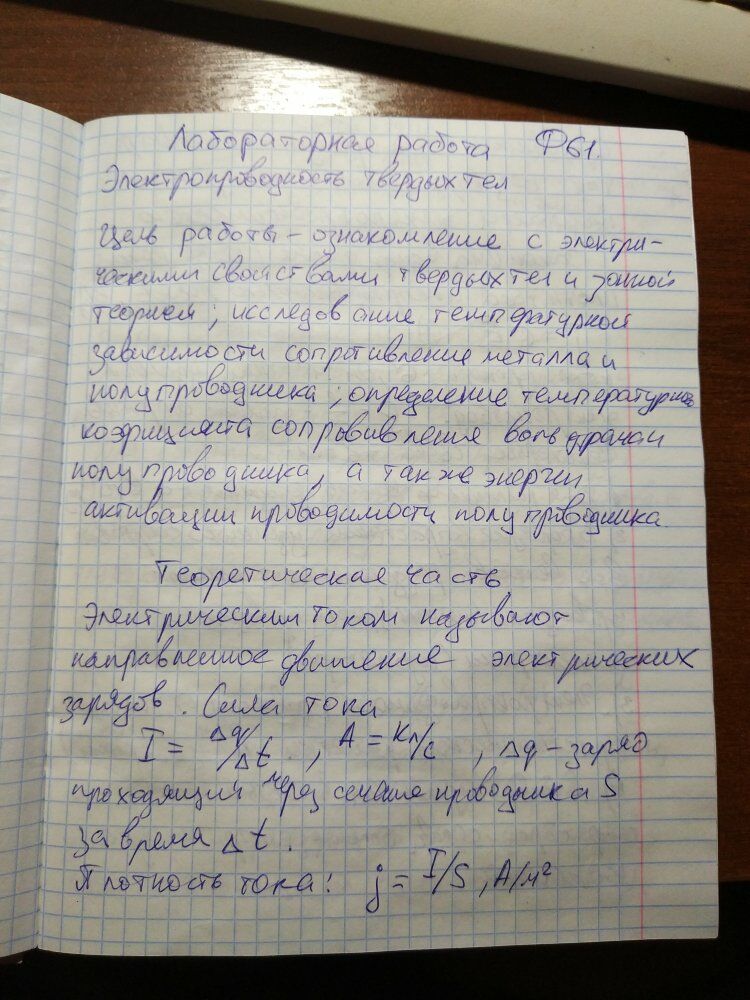 Лабораторная работа Ф61.
Электропроводность твёрдых тел
Цель работы – ознакомление с электри-
ческими свойствами твердых тел и зонной
теорией; исследование температурной
зависимости сопротивление металла и
полупроводника; определение температурного
коэфициента сопротивление
полупроводника, а также энергии
активации проводимости полупроводника
Теоретическая часть
Электрическим током называют
направленное движение электрических
зарядов. Сила тока
I = Δq/Δt, А = Кл/с, Δq – заряд
проходящий через сечение проводника S
за время Δt.
Плотность тока: j = I/S, А/м²